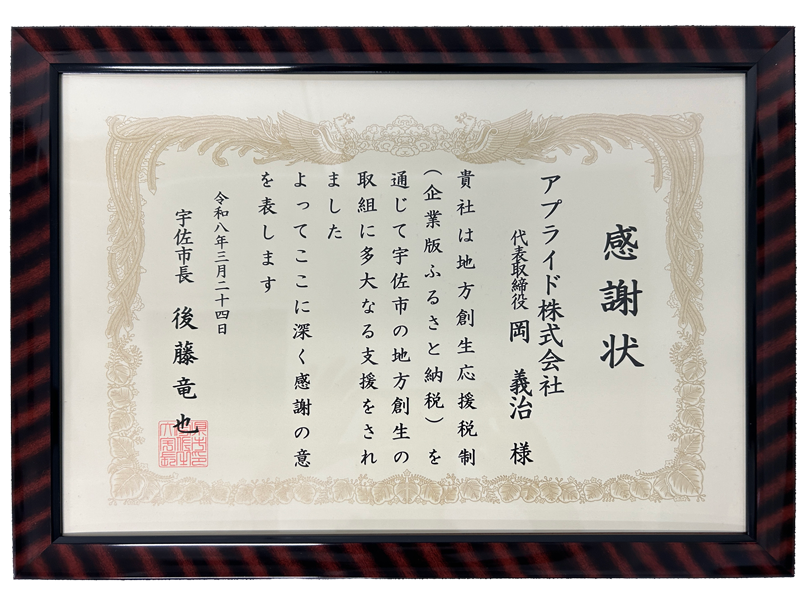 感謝状
アプライド株式会社
代表取締役 岡 義治 様
貴社は地方創生応援税制
（企業版ふるさと納税）を
通じて宇佐市の地方創生の
取組に多大なる支援をされ
ました
よってここに深く感謝の意
を表します
令和八年三月二十四日
宇佐市長 後藤竜也